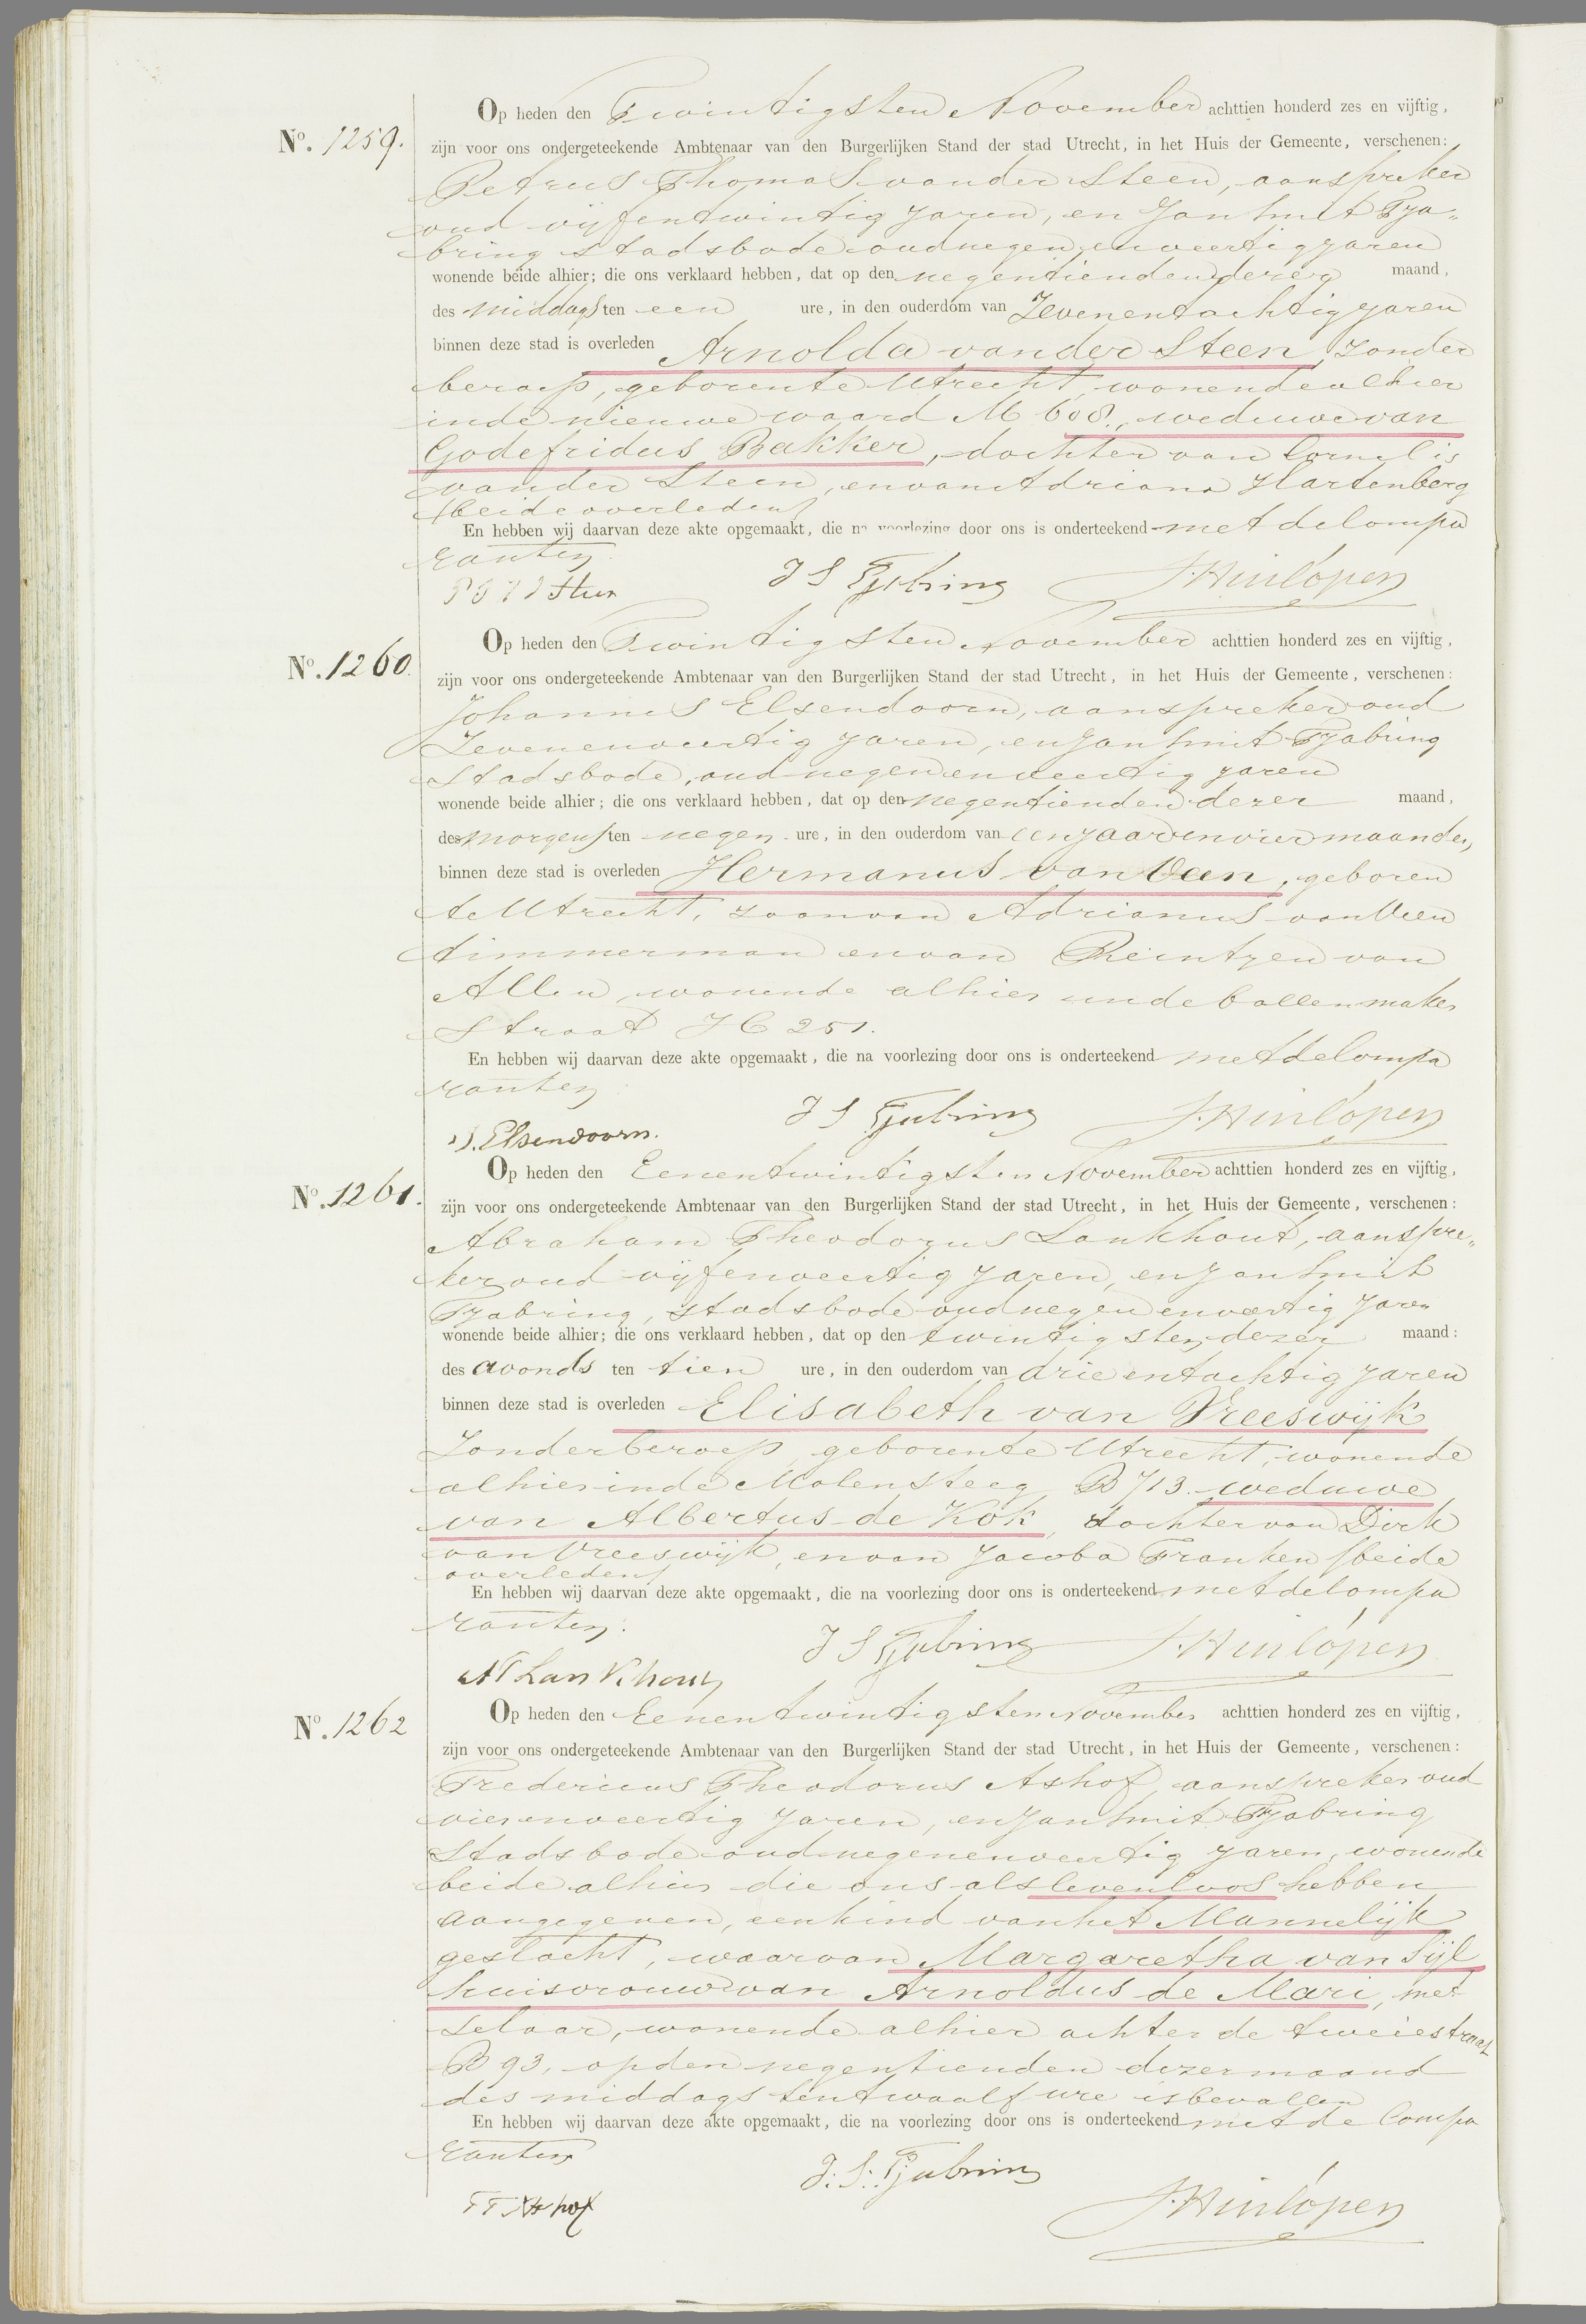 Op heden den Twintigsten November achttien honderd zes en vijftig,
No. 1259. zijn voor ons ondergeteekende Ambtenaar van den Burgerlijken Stand der stad Utrecht, in het Huis der Gemeente, verschenen:
Petrus Thomas van der Steen, aanspreker
oud vijfentwintig jaren, en Jan Smit Tja„
bring stadsbode oud negen en veertig jaren
wonende beide alhier; die ons verklaard hebben, dat op den negentienden dezer maand,
des middags ten een ure, in den ouderdom van Zevenentachtig jaren
binnen deze stad is overleden Arnolda van der Steen, zonder
beroep, geboren te Utrecht, wonende alhier
in de nieuwe waard M 608., weduwe van
Godefridus Bakker, dochter van Cornelis
van der Steen, en van Adriana Hartenberg
(beide overleden)
En hebben wij daarvan deze akte opgemaakt, die na voorlezing door ons is onderteekend met de Compa
ranten
J S Tjabring J. Hinlópen
Op heden den Twintigsten November achttien honderd zes en vijftig,
No. 1260. zijn voor ons ondergeteekende Ambtenaar van den Burgerlijken Stand der stad Utrecht, in het Huis der Gemeente, verschenen:
Johannes Elsendoorn, aanspreker oud
Zevenenveertig jaren, en Jan Smit Tjabring
Stadsbode, oud negen en veertig jaren
wonende beide alhier; die ons verklaard hebben, dat op den negentienden dezer maand,
des morgens ten negen ure, in den ouderdom van een jaar en vier maanden,
binnen deze stad is overleden Hermanus van Veen, geboren
te Utrecht, zoon van Adrianus van Veen
timmerman en van Reintjen van
Allen, wonende alhier in de ballenmaker
straat H 251.
En hebben wij daarvan deze akte opgemaakt, die na voorlezing door ons is onderteekend met de Compa
ranten
J. Elsendoorn. J S Tjabring J. Hinlópen
Op heden den Eenentwintigsten November achttien honderd zes en vijftig,
No. 1261. zijn voor ons ondergeteekende Ambtenaar van den Burgerlijken Stand der stad Utrecht, in het Huis der Gemeente, verschenen:
Abraham Theodorus Lankhout, aanspre„
ker oud vijfenveertig jaren, en Jan Smit
Tjabring, stadsbode oud negen en veertig jaren
wonende beide alhier; die ons verklaard hebben, dat op den twintigsten dezer maand:
des avonds ten tien ure, in den ouderdom van drie en tachtig jaren
binnen deze stad is overleden Elisabeth van Vreeswijk
Zonder beroep, geboren te Utrecht, wonende
alhier in de Molensteeg B 713. weduwe
van Albertus de Kok, dochter van Dirk
van Vreeswijk, en van Jacoba Franken (beide
overleden)
En hebben wij daarvan deze akte opgemaakt, die na voorlezing door ons is onderteekend met de Compa
ranten.
AT Lankhout J S Tjabring J. Hinlópen
Op heden den Eenentwintigsten November achttien honderd zes en vijftig,
No. 1262 zijn voor ons ondergeteekende Ambtenaar van den Burgerlijken Stand der stad Utrecht, in het Huis der Gemeente, verschenen:
Fredericus Theodorus Ashof, aanspreker oud
vierenveertig jaren, en Jan Smit Tjabring
Stadsbode oud negenenveertig jaren, wonende
beide alhier die ons als levenloos hebben
aangegeven, een kind van het Mannelijk
geslacht, waarvan Margaretha van Sijl
huisvrouw van Arnoldus de Mari, met
selaar, wonende alhier achter de tweie straat
B 93, op den negentienden dezer maand
des middags ten twaalf ure is bevallen
En hebben wij daarvan deze akte opgemaakt, die na voorlezing door ons is onderteekend met de Compa
ranten
FT Ashof J. S. Tjabring J. Hinlópen